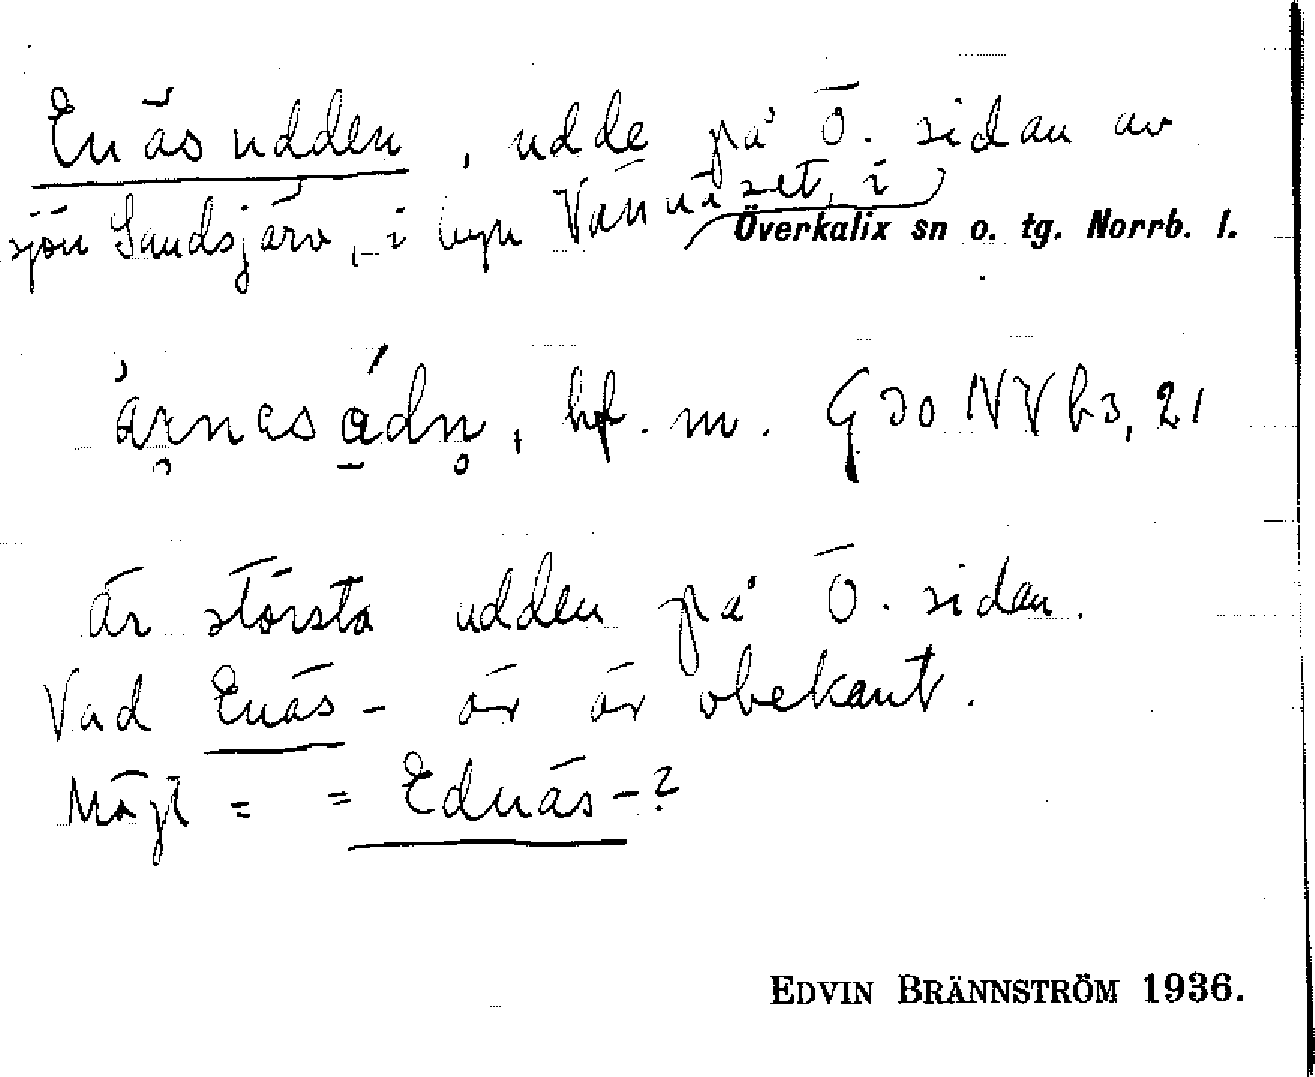 Enäsudden, udde på Ö. sidan av
sjön Sandsjärv, i byn Vännäset, i
Överkalix sn o. tg. Norrb. l.
hpf. m. G30 NV b3, 21
är största udden på Ö. sidan.
Vad Enäs- är är obekant.
Möjl = = Ednäs-?
EDVIN BRÄNNSTRÖM 1936.